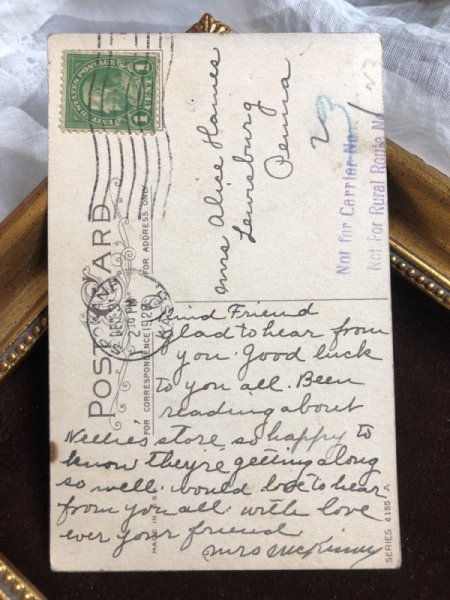 U.S. POSTAGE
1 CENT 1
POST CARD
FOR ADDRESS ONLY
FOR CORRESPONDENCE
DEC
PM
Mrs Alice Hames
Lewisburg
Penna
23
Not for Carrier No.
Not For Rural Route No
23
Kind Friend
Glad to hear from
you. Good luck
to you all. Been
reading about
Nellie's store, so happy to
know they're getting along
so well. would love to hear
from you all. with love
ever your friend
Mrs McKinney
MADE IN U.S.A
SERIES 2155 A